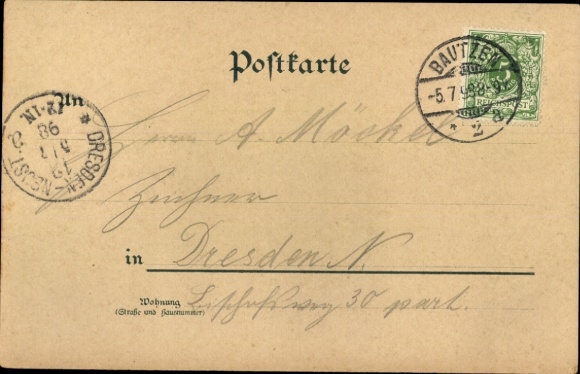 Postkarte
BAUTZEN
-5.7.98 8-9V
* 2 a
5
REICHSPOST
An
Herrn A. Möckel
DRESDEN-NEUST. *
5 / 7
98
12-1N.
Zeichner
in Dresden N.
Wohnung
(Straße und Hausnummer)
Bischofsweg 30 part.